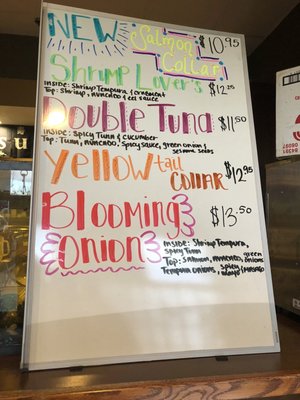 NEW Salmon $10.95
Collar
Shrimp Lover's $12.25
Inside: Shrimp Tempura & crabmeat
Top: Shrimp, avocado & eel sauce
Double Tuna $11.50
Inside: Spicy Tuna & cucumber
Top: Tuna, avocado, spicy sauce, green onion &
sesame seeds
Yellow tail $12.95
COLLAR
Blooming $13.50
Onion
Inside: Shrimp Tempura,
spicy Tuna
Top: Salmon, avocado, green onions
Tempura onions, spicy
mayo & masago
su